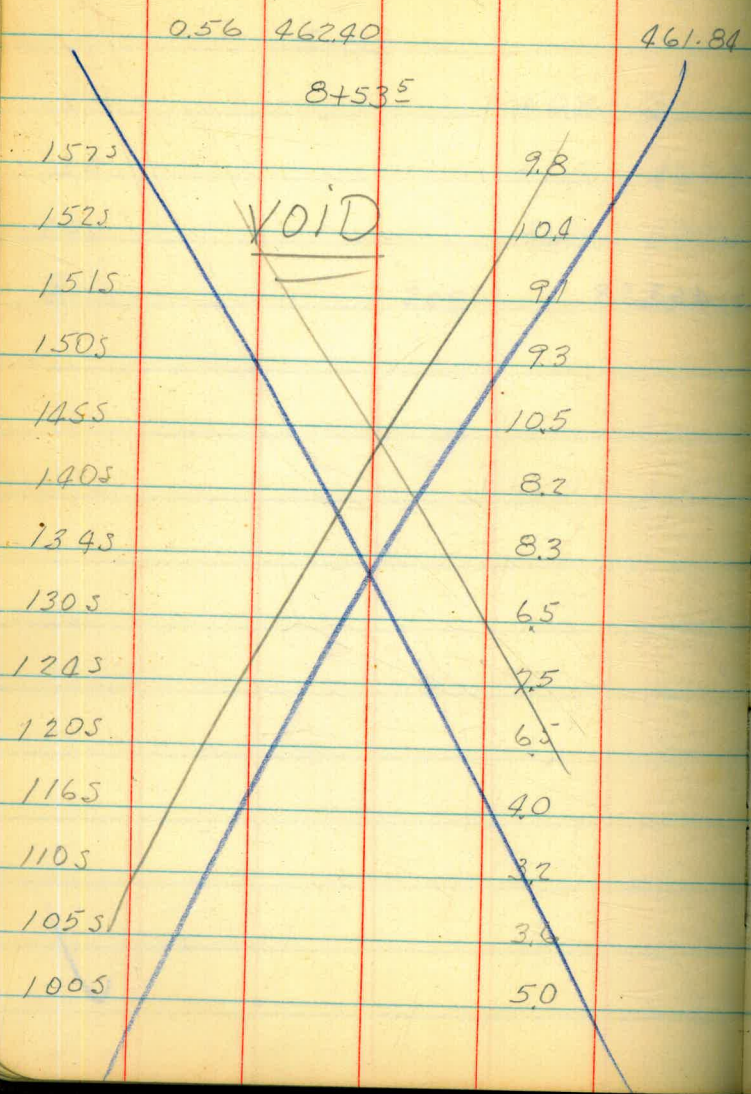 0.56 462.40 461.84
8+53⁵
157S 9.8
VOID
152S 10.4
151S 9.1
150S 9.3
145S 10.5
140S 8.2
134S 8.3
130S 6.5
124S 7.5
120S 6.5
116S 4.0
110S 3.2
105S 3.6
100S 5.0